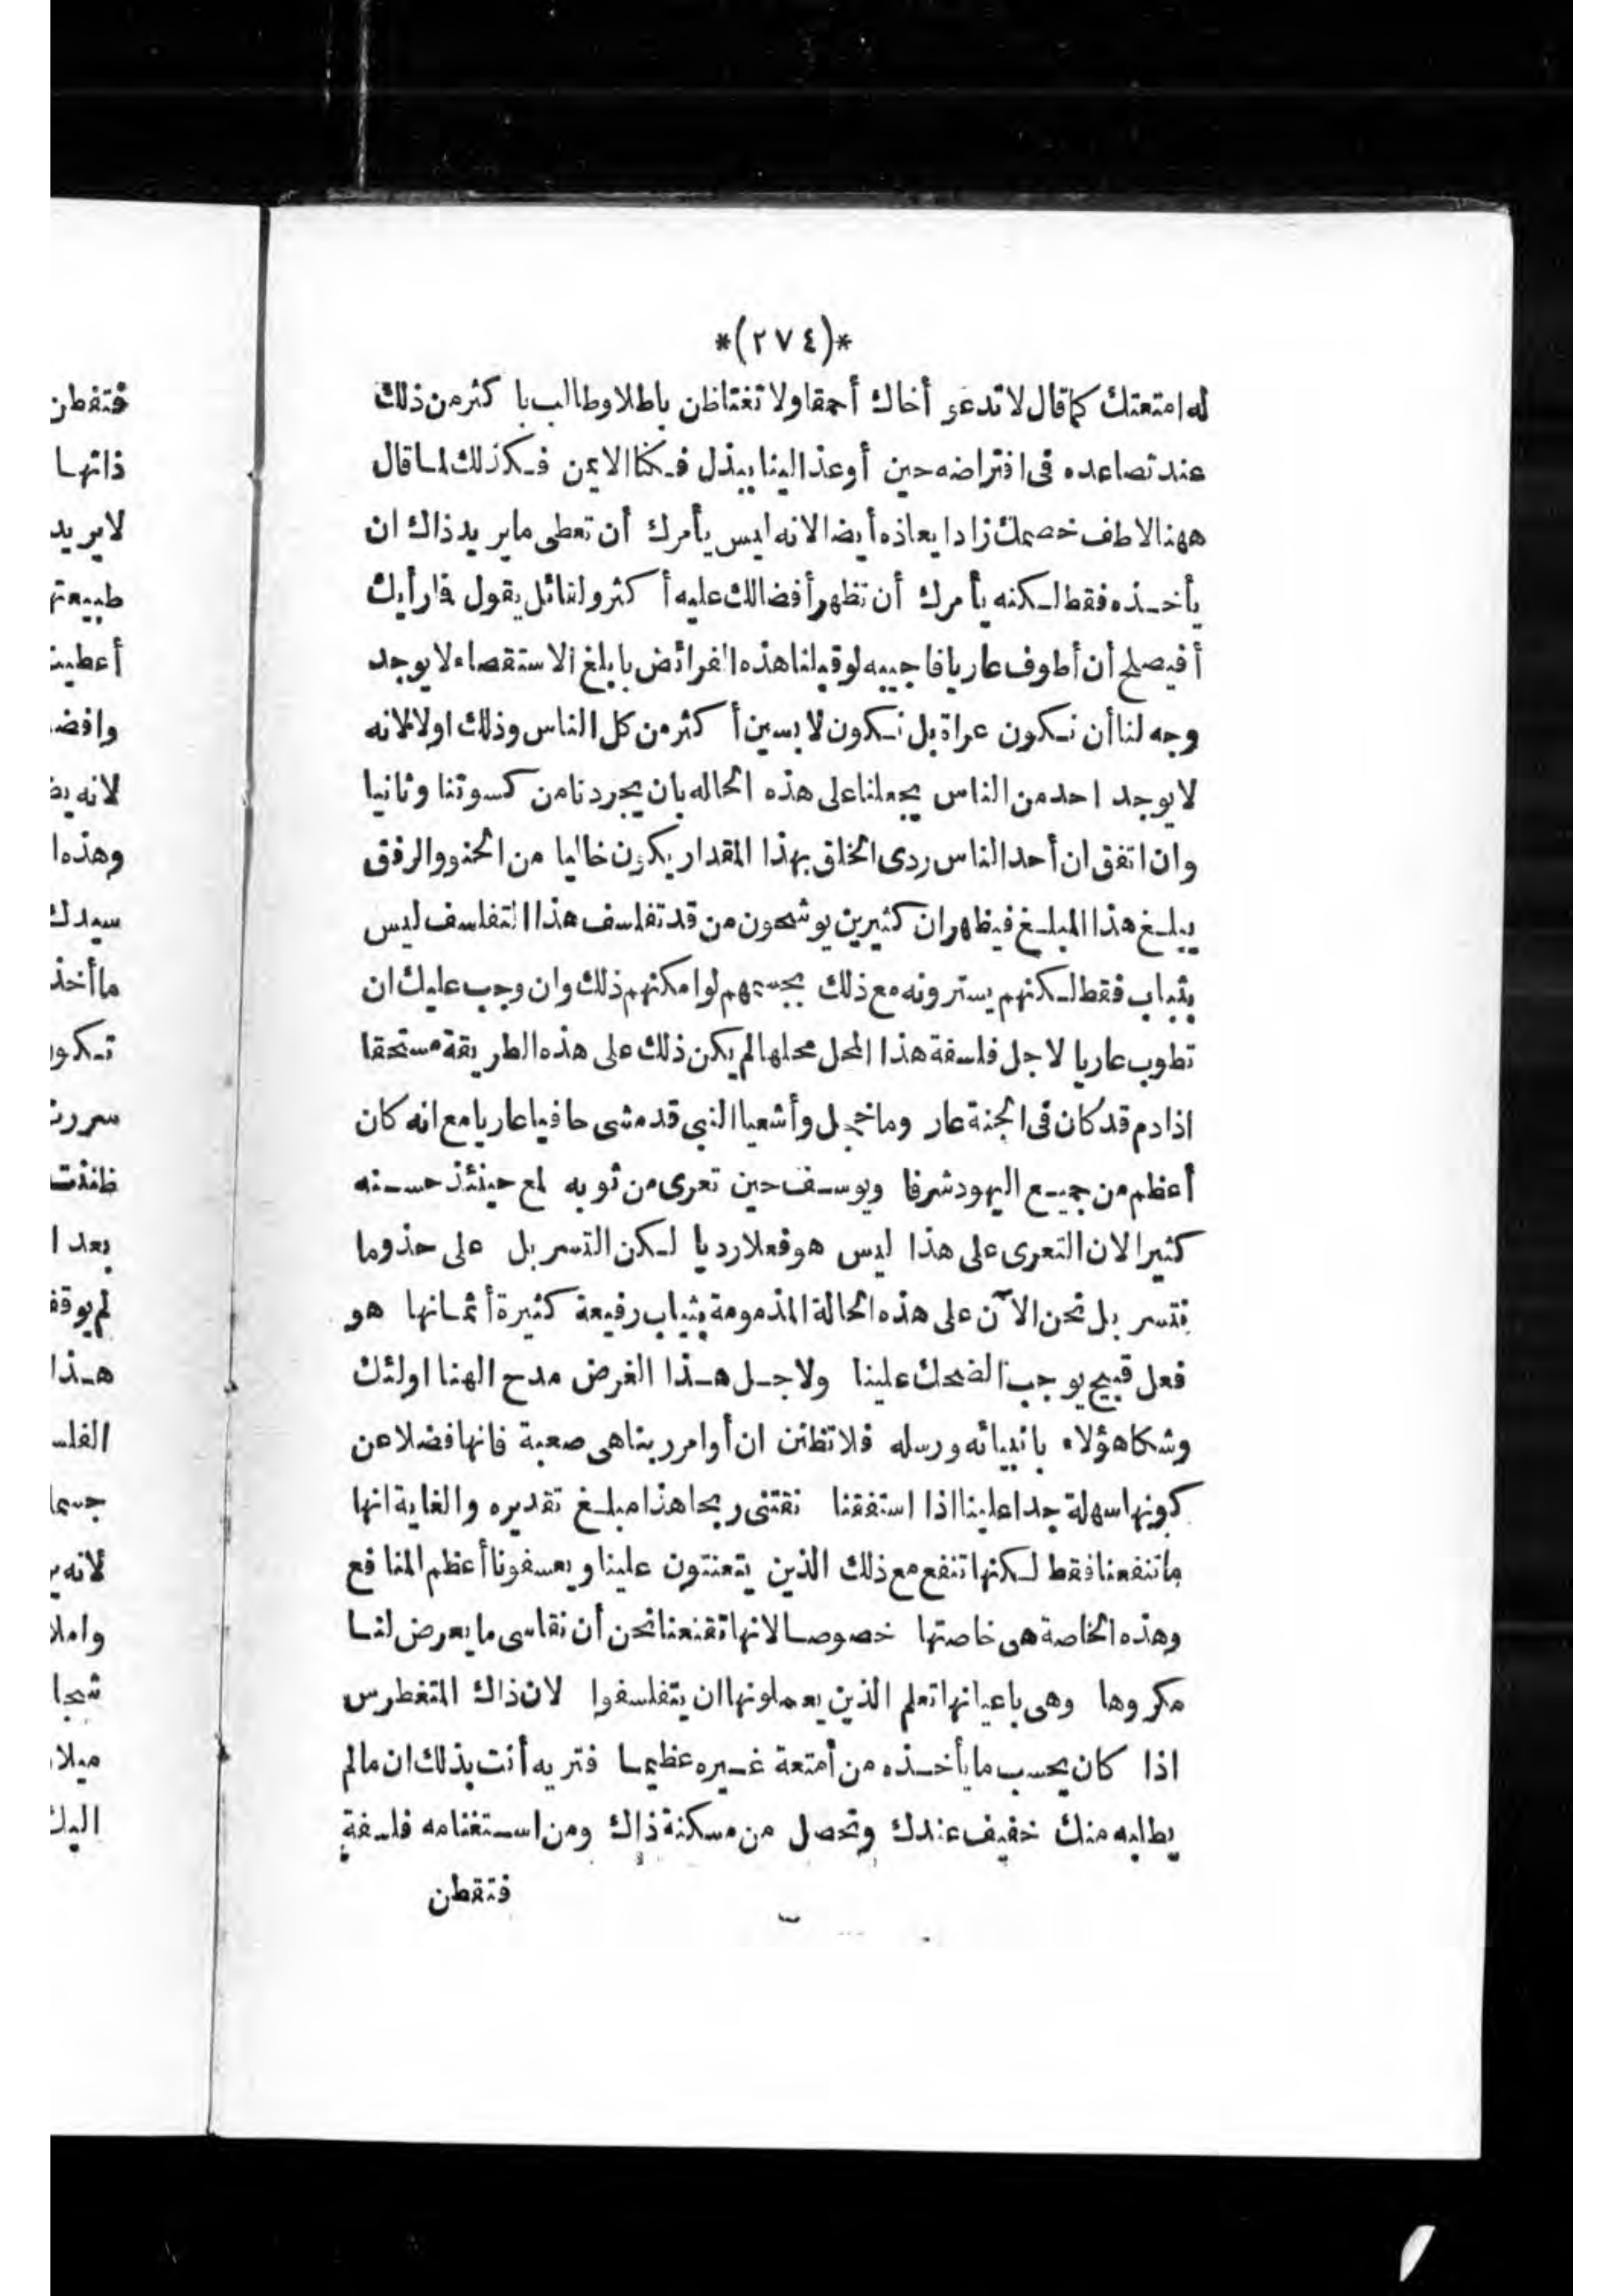 *(٢٧٤)*
له امتعتك كما قال لا تدعو أخاك أحمقا ولا تغتاظن باطلا وطالب با كثر من ذلك
عند تصاعده فى افتراضه حين أوعذ الينا ببذل فكنا الايمن فكذلك لما قال
ههنا لاطف خصمك زاد ايعاذه أيضا لانه ليس يأمرك أن تعطى ما يريد ذاك ان
يأخذه فقط لكنه يأمرك أن تظهر أفضالك عليه أكثر ولقائل يقول فما رأيك
أفيصلح أن أطوف عاريا فاجيبه لو قبلنا هذه الفرائض بابلغ الاستقصاء لا يوجد
وجه لنا أن نكون عراة بل نكون لابسين أكثر من كل الناس وذلك اولا لانه
لا يوجد احد من الناس يجعلنا على هذه الحاله بان يجردنا من كسوتنا وثانيا
وان اتفق ان أحد الناس ردى الخلق بهذا المقدار يكون خاليا من الحنو والرفق
يبلغ هذا المبلغ فيظهر ان كثيرين يوشحون من قد تفلسف هذا التفلسف ليس
بثياب فقط لكنهم يسترونه مع ذلك بجسمهم لو امكنهم ذلك وان وجب عليك ان
تطوب عاريا لاجل فلسفة هذا المحل محلها لم يكن ذلك على هذه الطريقة مستحقا
اذ ادم قد كان فى الجنة عار وما خجل وأشعيا النبى قد مشى حافيا عاريا مع انه كان
أعظم من جميع اليهود شرفا ويوسف حين تعرى من ثوبه لمع حينئذ حسنه
كثيرا لان التعرى على هذا ليس هو فعلا رديا لكن التسربل على حذو ما
نتسربل نحن الآن على هذه الحالة المذمومة بثياب رفيعة كثيرة أثمانها هو
فعل قبيح يوجب الضحك علينا ولاجل هذا الغرض مدح الهنا اولئك
وشكا هؤلاء بانبيائه ورسله فلا تظنن ان أوامر ربنا هى صعبة فانها فضلا عن
كونها سهلة جدا علينا اذا استفقنا نقتنى ربحا هذا مبلغ تقديره والغاية انها
ما تنفعنا فقط لكنها تنفع مع ذلك الذين يتعنتون علينا ويعسفونا أعظم المنافع
وهذه الخاصة هى خاصتها خصوصا لانها تقنعنا نحن أن نقاسى ما يعرض لنا
مكروها وهى باعيانها تعلم الذين يعملونها ان يتفلسفوا لان ذاك المتغطرس
اذا كان يحسب ما يأخذه من أمتعة غيره عظيما فتريه أنت بذلك ان ما لم
يطلبه منك خفيف عندك وتحصل من مسكنة ذاك ومن استغنامه فلسفة
فتقطن
فتفطن
ذاتها
لا يريد
أعطيت
وهذه ا
سيدك
ما أخذ
سررت
ظننت
بعد ا
هذا